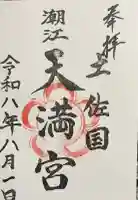 奉拝
土佐国
潮江
天満宮
令和八年八月一日